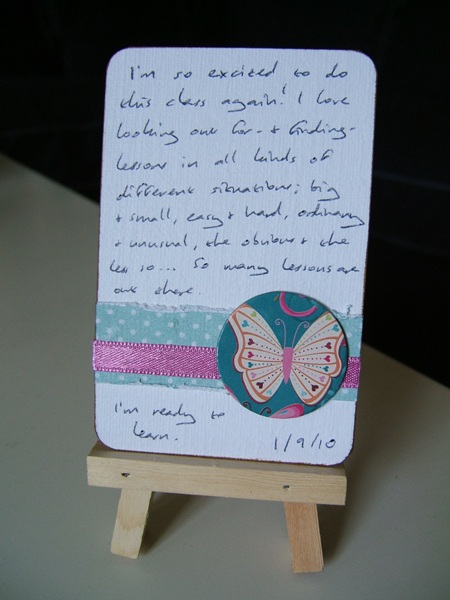 I'm so excited to do
this class again! I love
looking out for - & finding -
lessons in all kinds of
different situations; big
& small, easy & hard, ordinary
& unusual, the obvious & the
less so... So many lessons are
out there.
I'm ready to
learn.
1/9/10